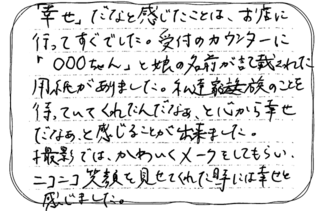 「幸せ」だなと感じたことは、お店に
行ってすぐでした。受付のカウンターに
「〇〇〇ちゃん」と娘の名前がきで載された
用紙がありました。私達家族のことを
待っていてくれたんだなぁ、と心から幸せ
だなぁ、と感じることが出来ました。
撮影では、かわいくメークをしてもらい、
ニコニコ笑顔を見せてくれた時には幸せと
感じました。